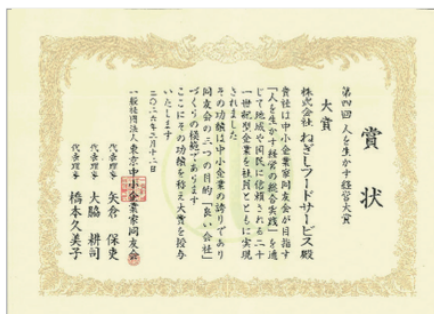 賞状
第四回 人を生かす経営大賞
大賞
株式会社 ねぎしフードサービス殿
貴社は中小企業家同友会が目指す
「人を生かす経営の総合実践」を通
じて地域や国民に信頼される二十
一世紀型企業を社員とともに実現
されました
その功績は中小企業の誇りであり
同友会の三つの目的「良い会社」
づくりの模範であります
ここにその功績を称え大賞を授与
いたします
一般社団法人東京中小企業家同友会
代表理事 矢倉 保吏
代表理事 大脇 耕司
代表理事 橋本久美子